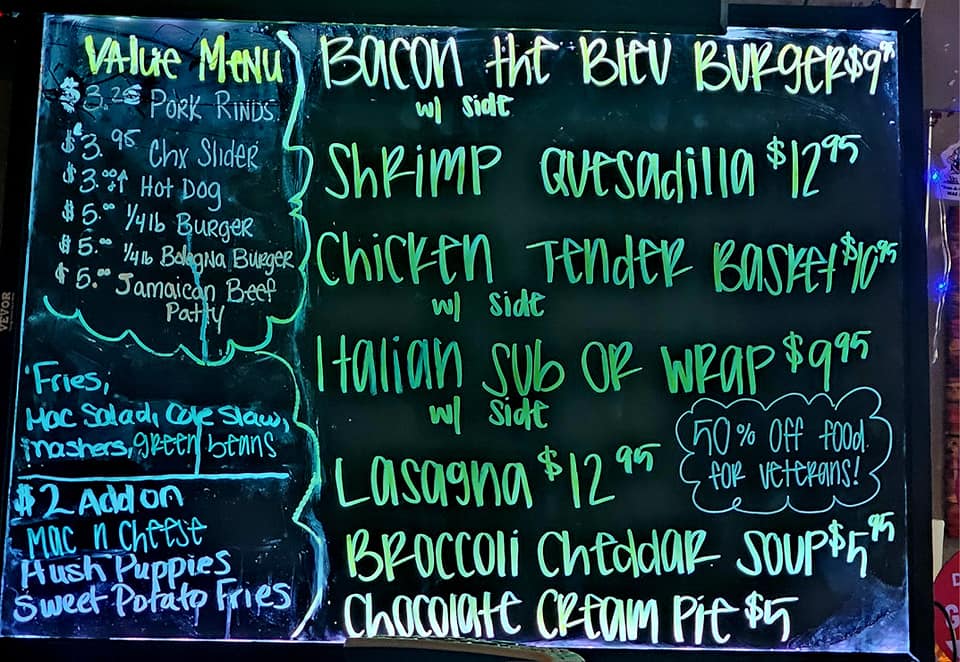 Value Menu
$3.25 Pork Rinds
$3.95 Chx Slider
$3.00↑ Hot Dog
$5.00 1/4lb Burger
$5.00 1/4lb Bologna Burger
$5.00 Jamaican Beef
Patty
Fries,
Mac Salad, Cole Slaw,
mashers, green beans
$2 Add on
Mac n Cheese
Hush Puppies
Sweet Potato Fries
Bacon the Bleu Burger $9.95
w/ side
Shrimp Quesadilla $12.95
Chicken Tender Basket $10.95
w/ side
Italian Sub or Wrap $9.95
w/ side
50% off food
for veterans!
Lasagna $12.95
Broccoli Cheddar Soup $5.95
Chocolate Cream Pie $5
VEVOR